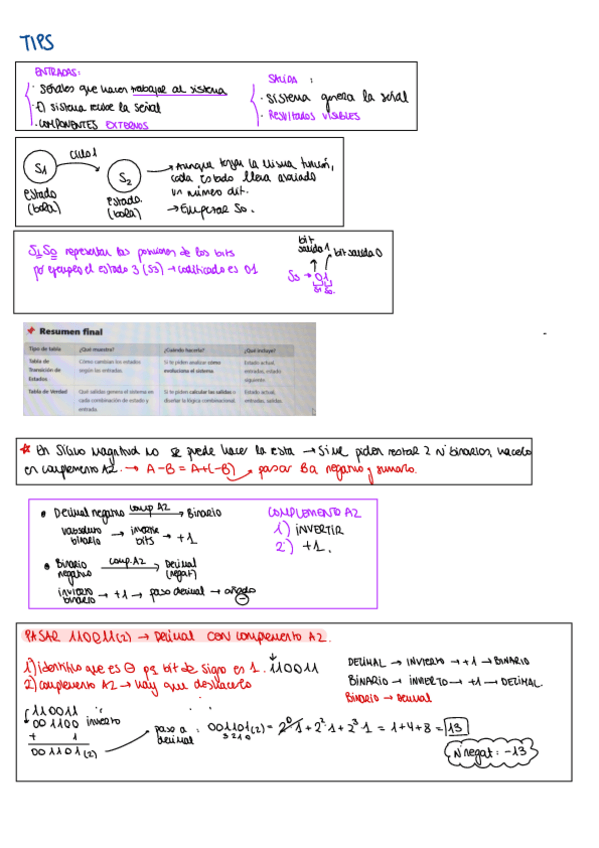 TIPS
ENTRADAS:
· Señales que hacen trabajar al sistema
· El sistema recibe la señal
· COMPONENTES EXTERNOS
SALIDA :
· Sistema genera la señal
· Resultados visibles
ciclo 1
S1
S2
estado (bola)
estado (bola)
→ Aunque tengan la misma función,
cada estado lleva asociado
un número dif.
→ Empezar S0.
S1 S0 representan las posiciones de los bits
por ejemplo el estado 3 (S3) → codificado es 01
bit salida 1
bit salida 0
S3 → 01
S1 S0
Resumen final
Tipo de tabla ¿Qué muestra? ¿Cuándo hacerla? ¿Qué incluye?
Tabla de Transición de Estados Cómo cambian los estados según las entradas. Si te piden analizar cómo evoluciona el sistema. Estado actual, entradas, estado siguiente.
Tabla de Verdad Qué salidas genera el sistema en cada combinación de estado y entrada. Si te piden calcular las salidas o diseñar la lógica combinacional. Estado actual, entradas, salidas.
En Signo Magnitud no se puede hacer la resta → Si me piden restar 2 nº binarios, hacerlo
en complemento A2. → A-B = A+(-B) pasar B a negativo y sumarlo.
• Decimal negativo comp A2 → Binario
vabsoluto binario → invierte bits → +1
• Binario negativo comp. A2 → Decimal (negat)
invierto binario → +1 → paso decimal → añado ⊖
COMPLEMENTO A2
1) INVERTIR
2) +1.
PASAR 110011(2) → Decimal con complemento A2.
1) identifico que es ⊖ pq bit de signo es 1. 110011
2) complemento A2 → hay que deshacerlo
DECIMAL → INVIERTO → +1 → BINARIO
BINARIO → INVIERTO → +1 → DECIMAL
Binario → Decimal
110011
001100 invierto
+ 1
001101(2)
paso a decimal : 001101(2) = 2⁰·1 + 2²·1 + 2³·1 = 1+4+8 = 13
3 2 1 0
Nº negat: -13